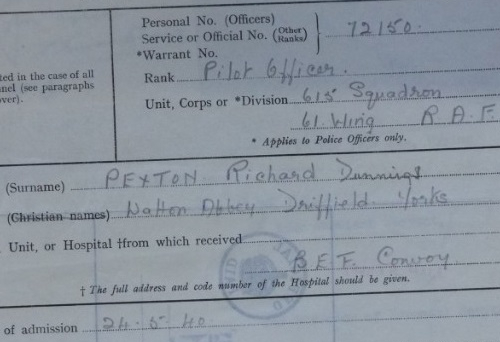 Personal No. (Officers)
Service or Official No. (Other Ranks) } 72150.
*Warrant No.
Rank Pilot Officer.
ted in the case of all
nnel (see paragraphs
over).
Unit, Corps or *Division 615 Squadron
61. Wing R.A.F
* Applies to Police Officers only.
(Surname) PEXTON Richard Dunning
(Christian names) Watton Abbey Driffield. Yorks
Unit, or Hospital †from which received
B.E.F. Convoy
† The full address and code number of the Hospital should be given.
of admission 24.5.40